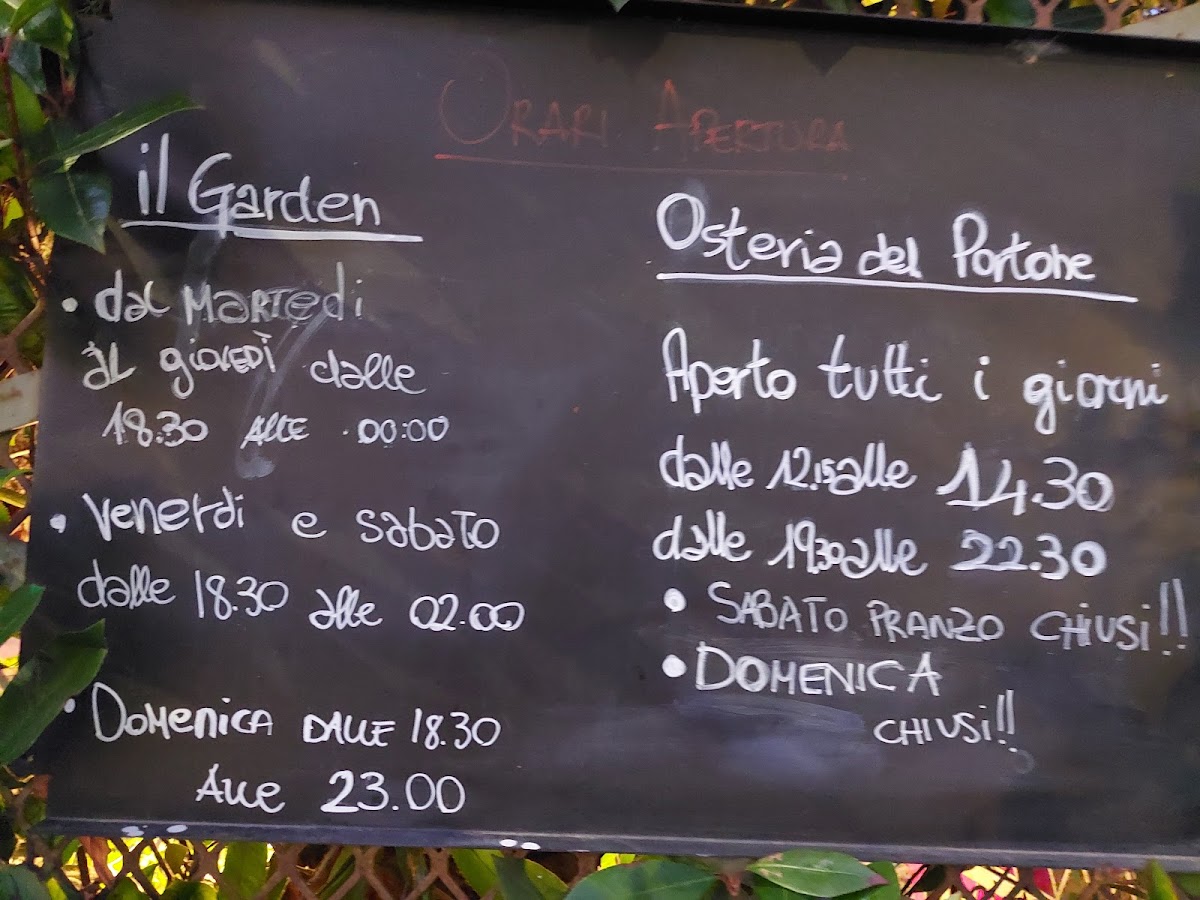 Orari Apertura
il Garden
• dal Martedi
al giovedì dalle
18.30 alle 00:00
• Venerdi e sabato
dalle 18.30 alle 02.00
• Domenica dalle 18.30
Alle 23.00
Osteria del Portone
Aperto tutti i giorni
dalle 12.15 alle 14.30
dalle 19.30 alle 22.30
• SABATO PRANZO CHIUSi!!
• DOMENICA
CHIUSi!!